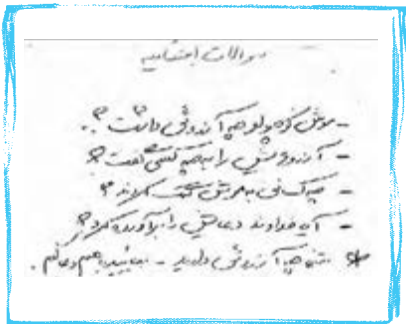 سوالات اجتماعیه
- موش کوچولو چه آرزوئی داشت؟
- آرزویش را به چه کسی گفت؟
- چه کسانی به موش کمک کردند؟
- آیا خداوند دعایش را برآورده کرد؟
* شما چه آرزوئی دارید - بیائید با هم دعا کنیم.